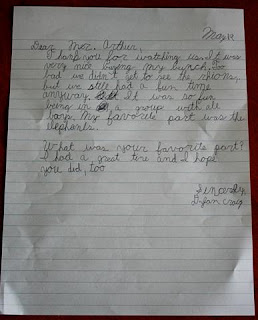 May 12
Dear Mrs. Arthur,
Thank you for watching us. It was
very nice buying my lunch. Too
bad we didn't get to see the
but we still had a fun time
anyway. It was so fun
being in a group with all
boys. My favorite part was the
elephants.
What was your favorite part?
I had a great time and I hope
you did, too
Sincerely,
Dylan Craig